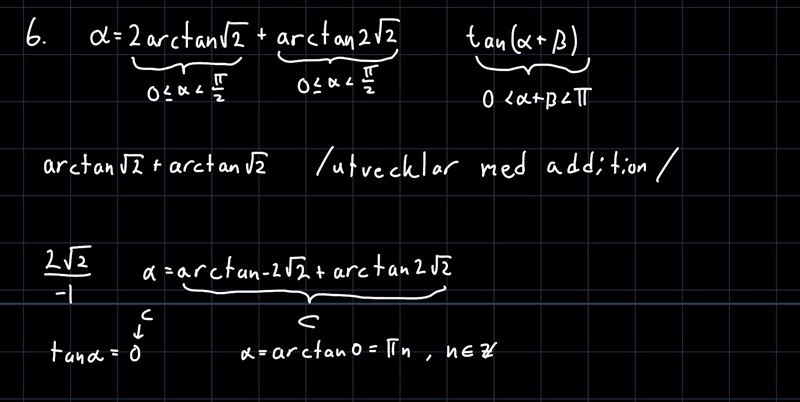 6. α = 2arctan√2 + arctan2√2 tan(α+β)
0 ≤ α < π/2 0 ≤ α < π/2 0 < α+β < π
arctan√2 + arctan√2 /utvecklar med addition/
2√2/-1 α = arctan-2√2 + arctan2√2
C C
tanα = 0 α = arctan0 = πn , n∈ℤ